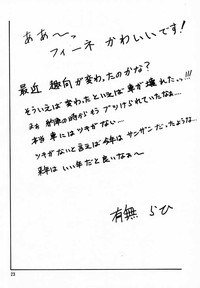 ああ～っ
フィーネ かわいいです!
最近 趣向が変わったのかな?
そういえば変わったといえば車が壊れたっ…!!!
まぁ 納車の時からイブツけられていたなぁ…
本当 車にはツキがない
ツキがないと言えば今年はサンザンだったような…
来年はいい年だと良いなぁ～
有無 らひ
23